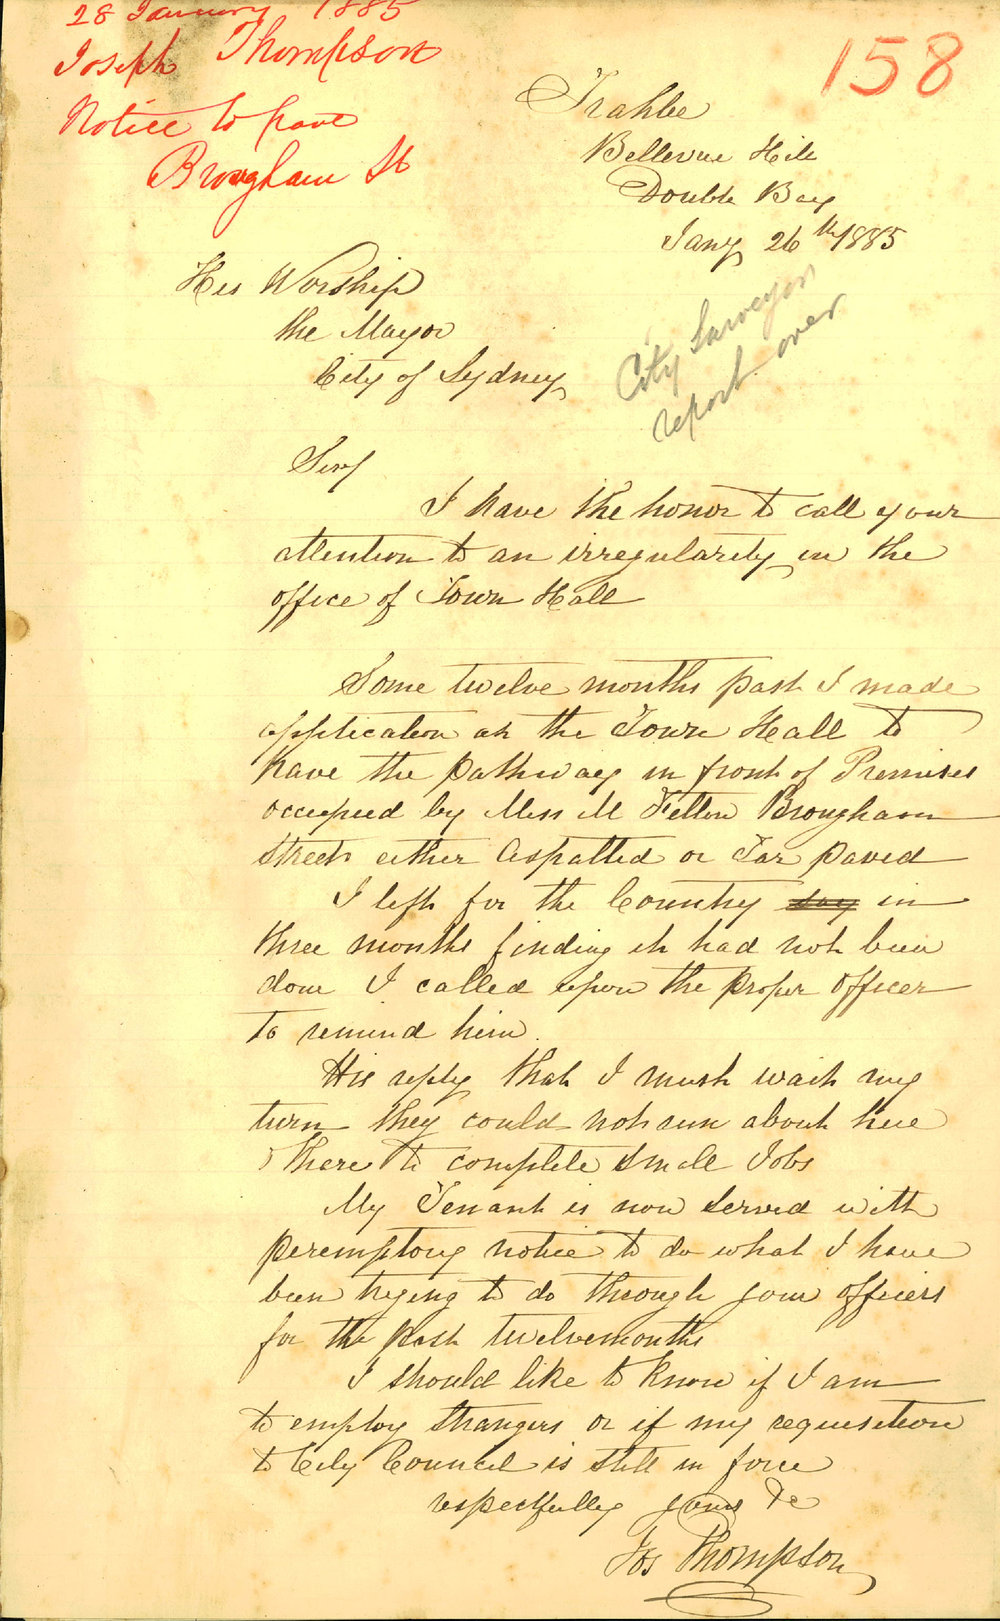 28 January 1885
Joseph Thompson
Notice to pave
Brougham St
158
Trahlee
Bellevue Hill
Double Bay
Jany 26th 1885
His Worship
the Mayor
City of Sydney
City Surveyor
report over
Sir
I have the honor to call your
attention to an irregularity in the
office of Town Hall
Some twelve months past I made
application at the Town Hall to
have the pathway in front of Premises
occupied by Miss M Fetton Brougham
Street either Aspalted or Tar paved
I left for the Country say in
three months finding it had not been
done I called upon the proper officer
to remind him.
His reply that I must wait my
turn they could not run about here
& there to complete small Jobs
My Tenant is now served with
peremptory notice to do what I have
been trying to do through your officers
for the past twelvemonths
I should like to know if I am
to employ strangers or if my requisition
to City Council is still in force
respectfully yours &c
Jos Thompson